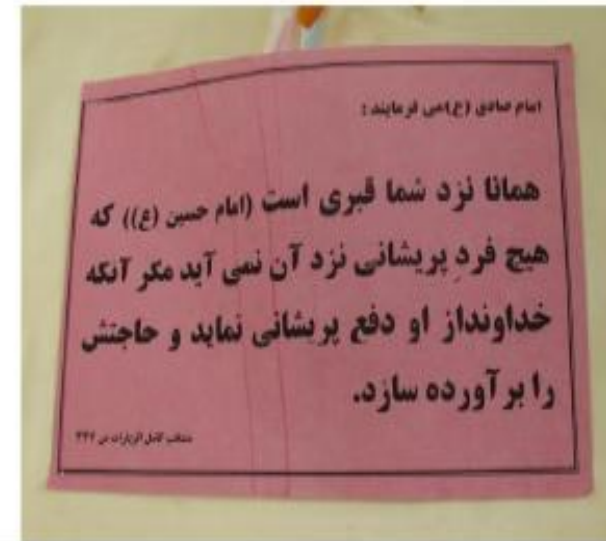 امام صادق (ع) می فرمایند :
همانا نزد شما قبری است (امام حسین (ع)) که
هیچ فردِ پریشانی نزد آن نمی آید مگر آنکه
خداونداز او دفع پریشانی نماید و حاجتش
را برآورده سازد.
منتخب کامل الزیارات ص